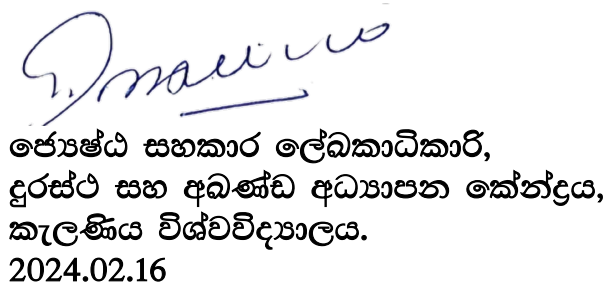 ජ්‍යෙෂ්ඨ සහකාර ලේඛකාධිකාරි,
දුරස්ථ සහ අඛණ්ඩ අධ්‍යාපන කේන්ද්‍රය,
කැලණිය විශ්වවිද්‍යාලය.
2024.02.16